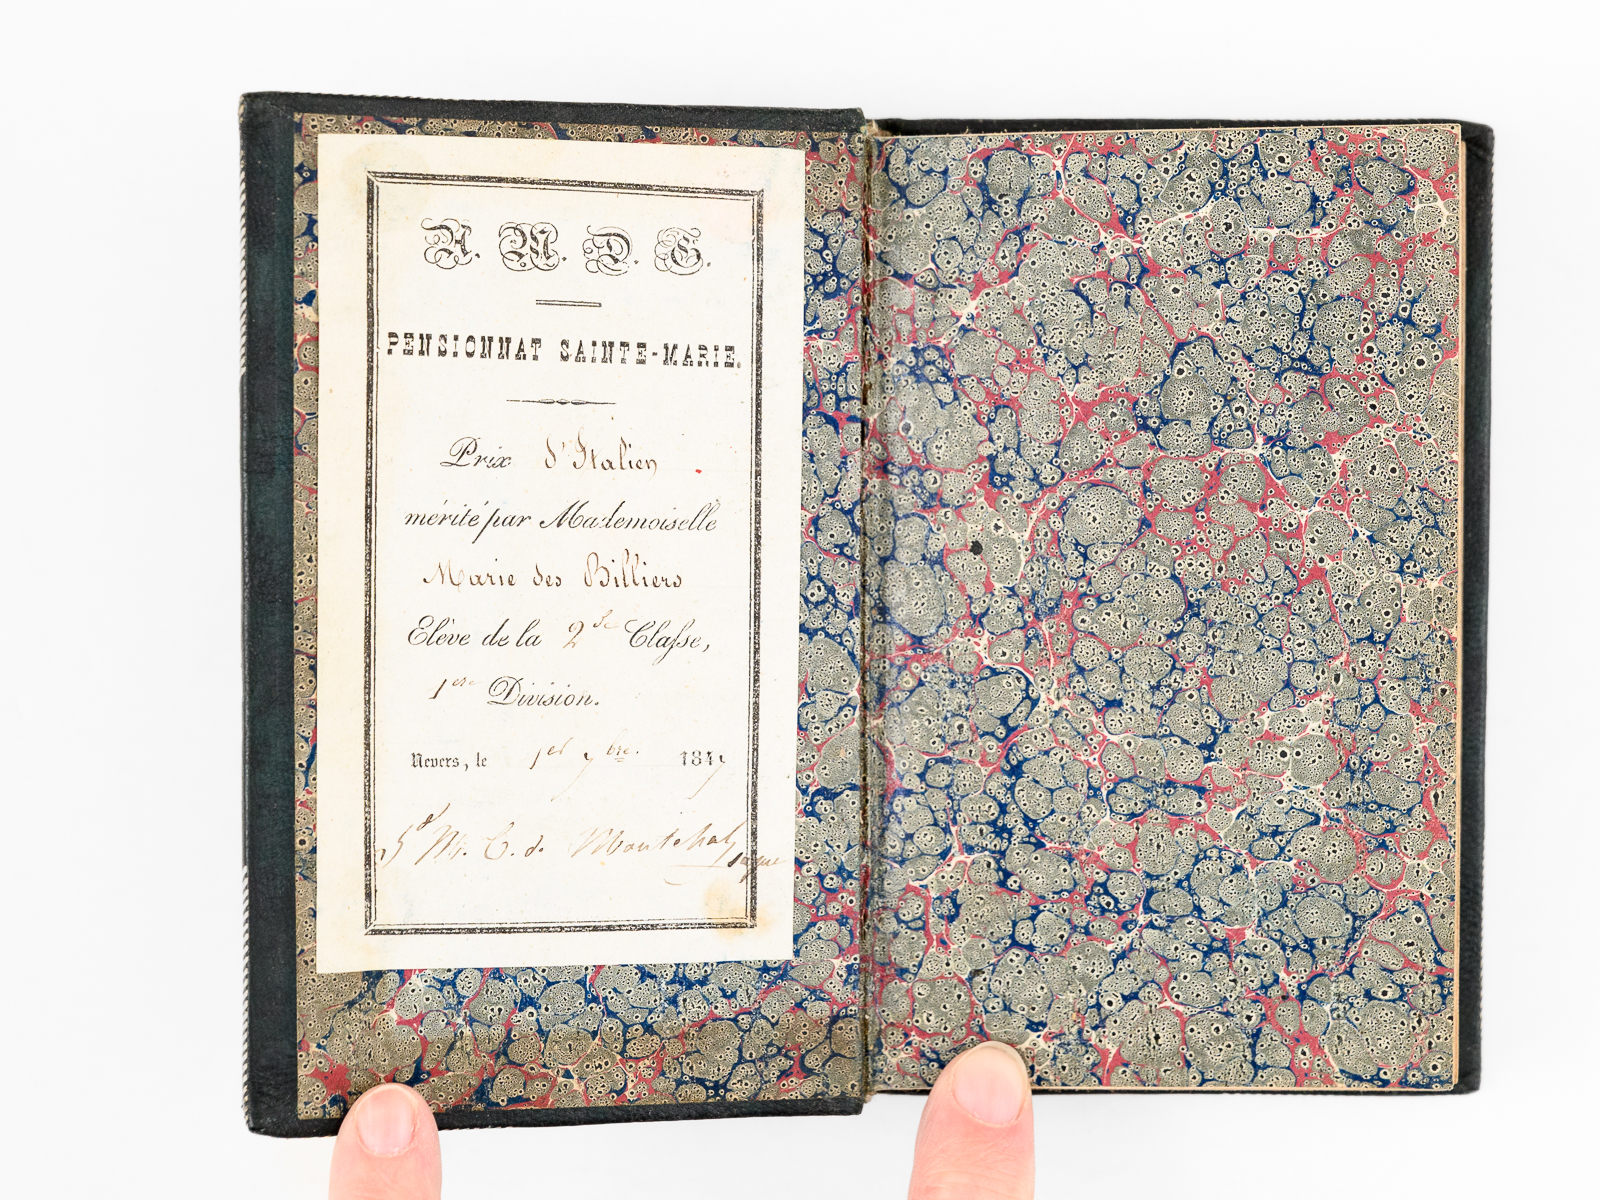 A. M. D. G.
PENSIONNAT SAINTE-MARIE.
Prix d'Italien
mérité par Mademoiselle
Marie des Billiers
Elève de la 2de Classe,
1ere Division.
Nevers, le 1er 7bre. 1847
M. C. d.